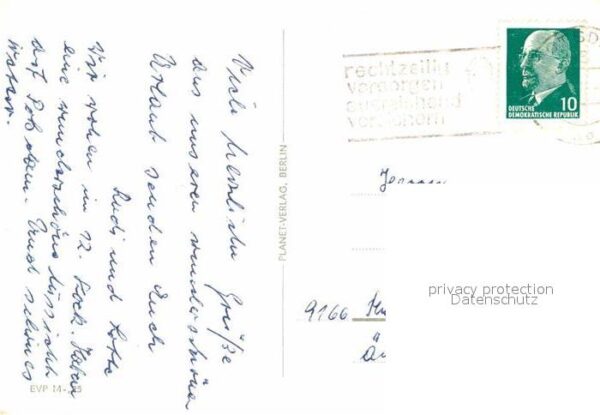 Viele herzliche Grüße
aus unserem wunderschönen
Urlaub senden Euch
Rudi und Lotte
Wir wohnen im 12. Stock. Haben
eine wunderschöne Aussicht
auf Potsdam. Und schönes
Wetter.
EVP M-,25
PLANET-VERLAG, BERLIN
rechtzeitig
vorsorgen
ausreichend
versichern
DEUTSCHE
DEMOKRATISCHE REPUBLIK
10
9166
privacy protection
Datenschutz